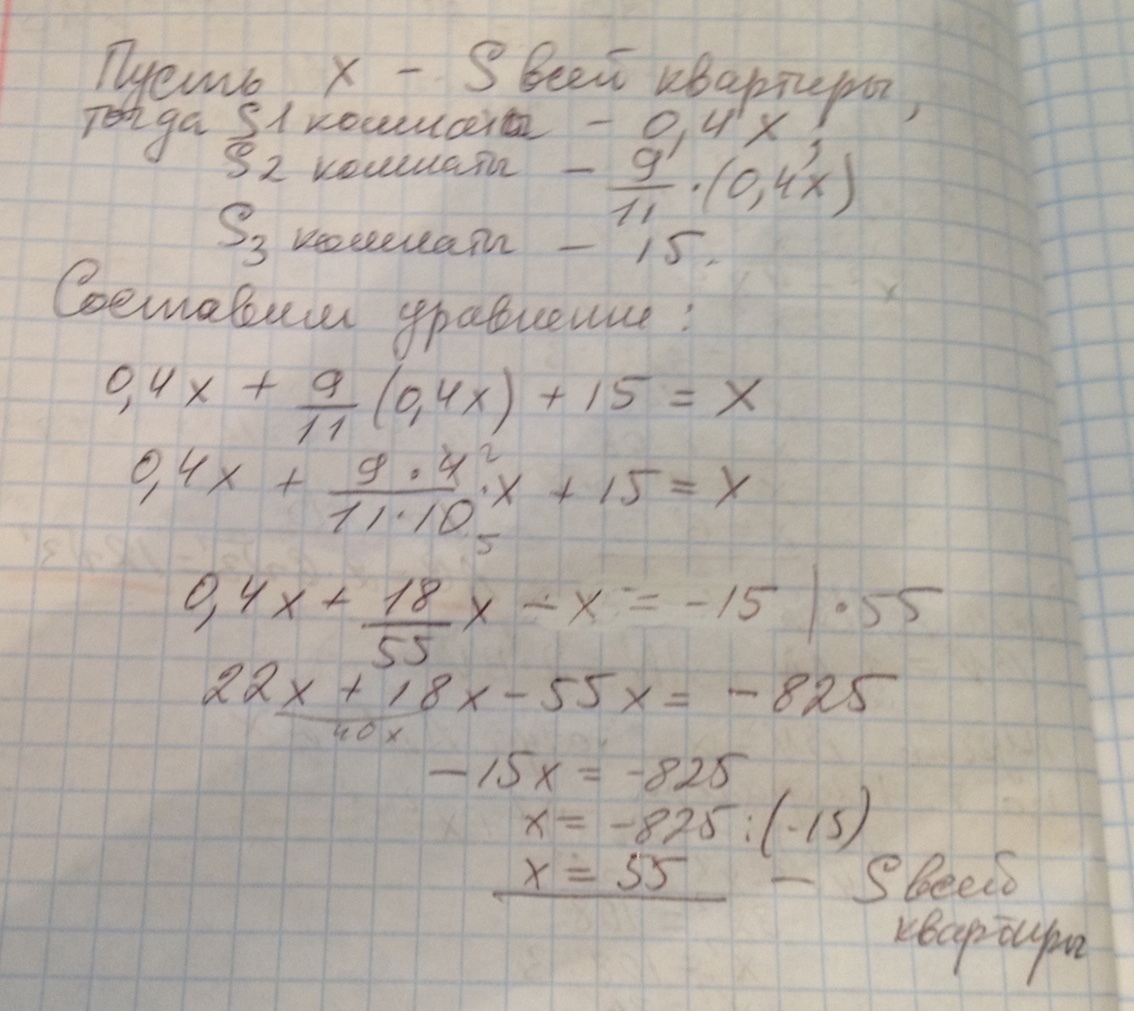 Пусть x – S всей квартиры,
тогда S1 комнаты – 0,4x,
S2 комнаты – 9/11 · (0,4x)
S3 комнаты – 15.
Составим уравнение:
0,4x + 9/11 (0,4x) + 15 = x
0,4x + 9·4²/11·10₅ · x + 15 = x
0,4x + 18/55 x – x = -15 | · 55
22x + 18x – 55x = – 825
40x
–15x = -825
x = -825 : (-15)
x = 55 – S всей
квартиры